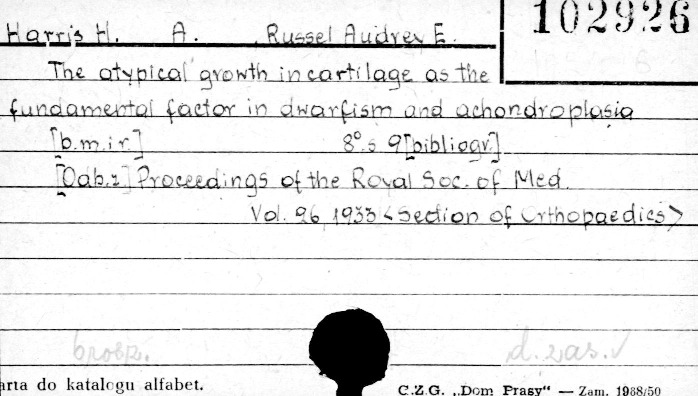 102926
Harris H. A. Russel Audrey E.
The atypical growth in cartilage as the
fundamental factor in dwarfism and achondroplasia
[b.m.i r.] 8°.s 9[bibliogr.]
[Odb.z] Proceedings of the Royal Soc. of Med.
Vol. 26, 1933 <Section of Orthopaedics>
brosz. d. zas. √
arta do katalogu alfabet. C.Z.G. „Dom Prasy“ — Zam. 1988/50